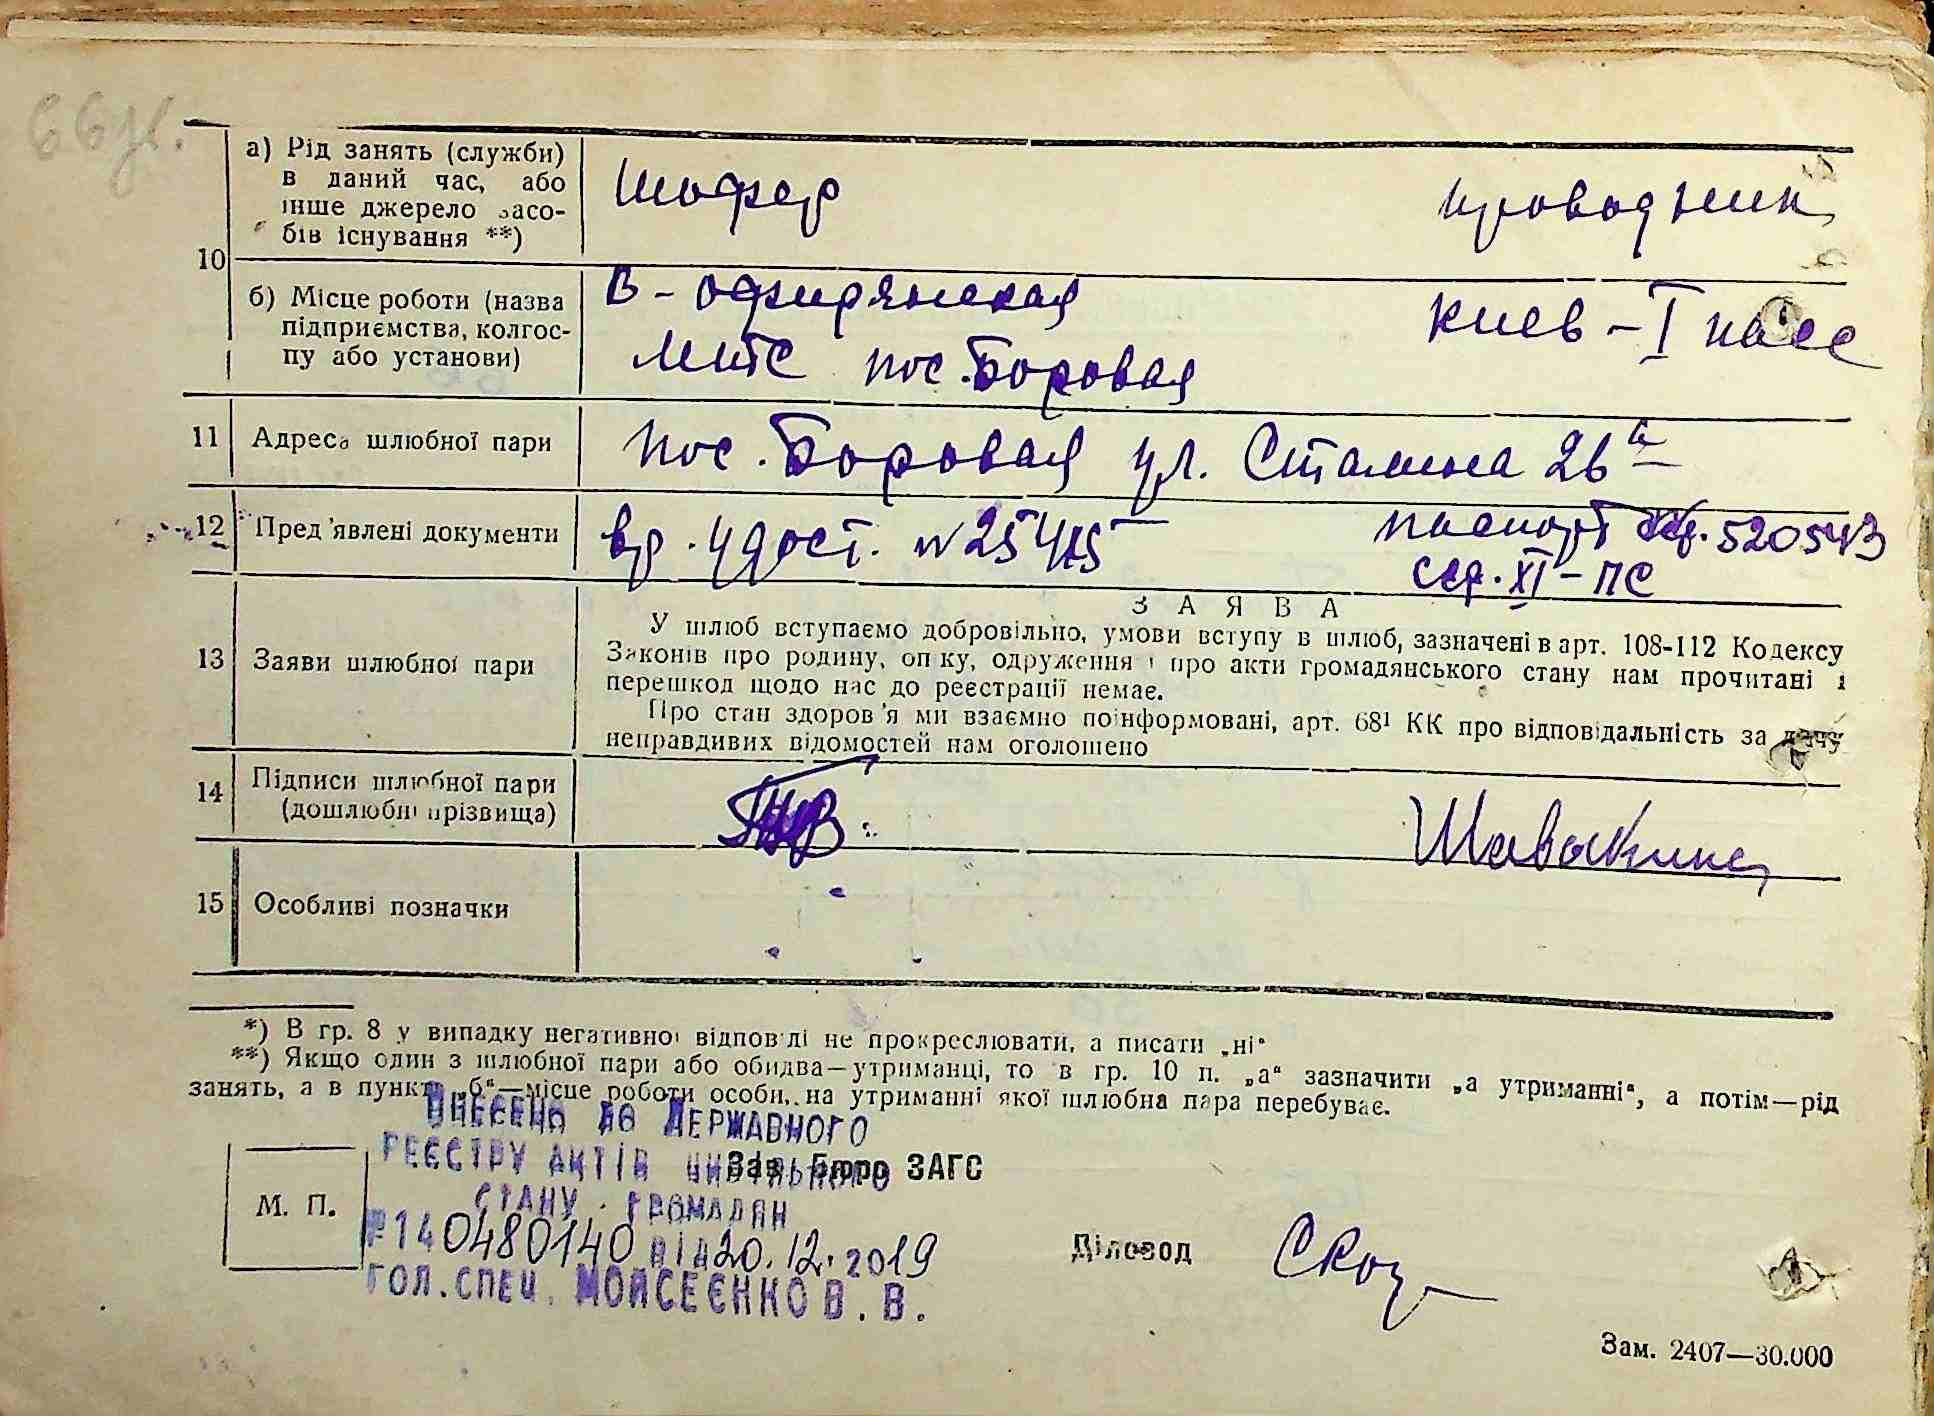 а) Рід занять (служби)
в даний час, або
інше джерело засо-
бів існування **)
Шофер
проводник
10
б) Місце роботи (назва
підприємства, колгос-
пу або установи)
В-
МТС пос. Боровая
Киев - I пасс
11 Адреса шлюбної пари
пос. Боровая ул. Сталина
12 Пред'явлені документи
вр. удост. № 25415
паспорт 520543
сер. XI - ПС
ЗАЯВА
13 Заяви шлюбної пари
У шлюб вступаємо добровільно, умови вступу в шлюб, зазначені в арт. 108-112 Кодексу
Законів про родину, опіку, одруження і про акти громадянського стану нам прочитані і
перешкод щодо нас до реєстрації немає.
Про стан здоров'я ми взаємно поінформовані, арт. 68¹ КК про відповідальність за дачу
неправдивих відомостей нам оголошено
14 Підписи шлюбної пари
(дошлюбні прізвища)
15 Особливі позначки
*) В гр. 8 у випадку негативної відповіді не прокреслювати, а писати „ні“
**) Якщо один з шлюбної пари або обидва—утриманці, то в гр. 10 п. „а“ зазначити „а утриманні“, а потім—рід
занять, а в пункті „б“—місце роботи особи, на утриманні якої шлюбна пара перебуває.
ВНЕСЕНО ДО ДЕРЖАВНОГО
РЕЄСТРУ АКТІВ ЦИВІЛЬНОГО
Зав. Бюро ЗАГС
СТАНУ ГРОМАДЯН
М. П.
№ 140480140 ВІД 20.12.2019
ГОЛ.СПЕЦ. МОЙСЕЄНКО В. В.
Діловод
Зам. 2407—30.000